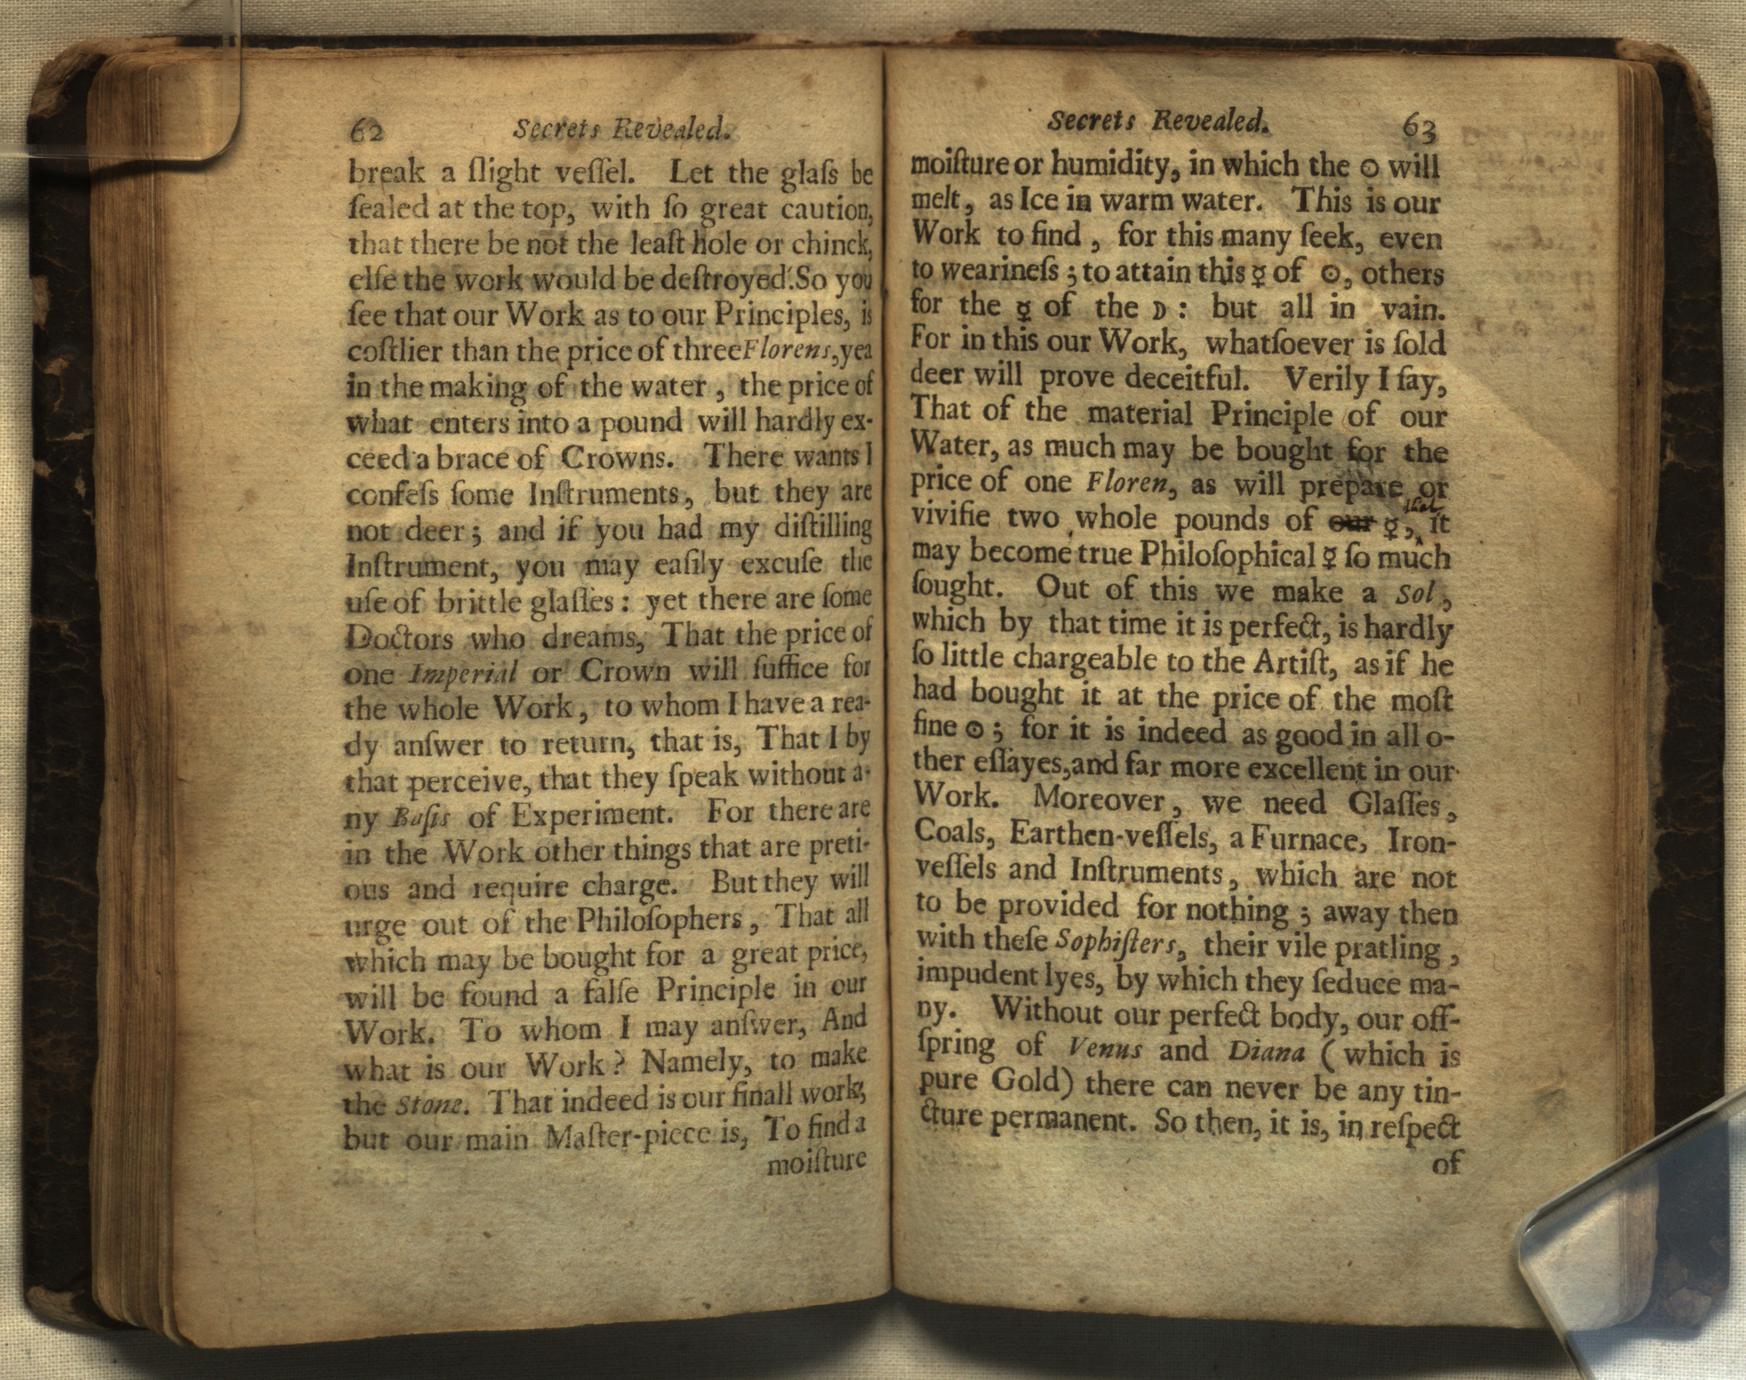 62 Secrets Revealed.
break a ſlight veſſel. Let the glaſs be
ſealed at the top, with ſo great caution,
that there be not the leaſt hole or chinck,
elſe the work would be deſtroyed. So you
ſee that our Work as to our Principles, is
coſtlier than the price of three Florens, yea
in the making of the water, the price of
what enters into a pound will hardly ex-
ceed a brace of Crowns. There wants I
confeſs ſome Inſtruments, but they are
not deer; and if you had my diſtilling
Inſtrument, you may eaſily excuſe the
uſe of brittle glaſſes: yet there are ſome
Doctors who dreams, That the price of
one Imperial or Crown will ſuffice for
the whole Work, to whom I have a rea-
dy anſwer to return, that is, That I by
that perceive, that they ſpeak without a-
ny Baſis of Experiment. For there are
in the Work other things that are preti-
ous and require charge. But they will
urge out of the Philoſophers, That all
which may be bought for a great price,
will be found a falſe Principle in our
Work. To whom I may anſwer, And
what is our Work? Namely, to make
the Stone. That indeed is our finall work;
but our main Maſter-piece is, To find a
moiſture
Secrets Revealed. 63
moiſture or humidity, in which the ☉ will
melt, as Ice in warm water. This is our
Work to find, for this many ſeek, even
to wearineſs; to attain this ☿ of ☉, others
for the ☿ of the ☽: but all in vain.
For in this our Work, whatſoever is ſold
deer will prove deceitful. Verily I ſay,
That of the material Principle of our
Water, as much may be bought for the
price of one Floren, as will prepare or
vivifie two whole pounds of our ☿, that it
may become true Philoſophical ☿ ſo much
ſought. Out of this we make a Sol,
which by that time it is perfect, is hardly
ſo little chargeable to the Artiſt, as if he
had bought it at the price of the moſt
fine ☉; for it is indeed as good in all o-
ther eſſayes, and far more excellent in our
Work. Moreover, we need Glaſſes,
Coals, Earthen-veſſels, a Furnace, Iron-
veſſels and Inſtruments, which are not
to be provided for nothing; away then
with theſe Sophiſters, their vile pratling,
impudent lyes, by which they ſeduce ma-
ny. Without our perfect body, our off-
ſpring of Venus and Diana (which is
pure Gold) there can never be any tin-
cture permanent. So then, it is, in reſpect
of